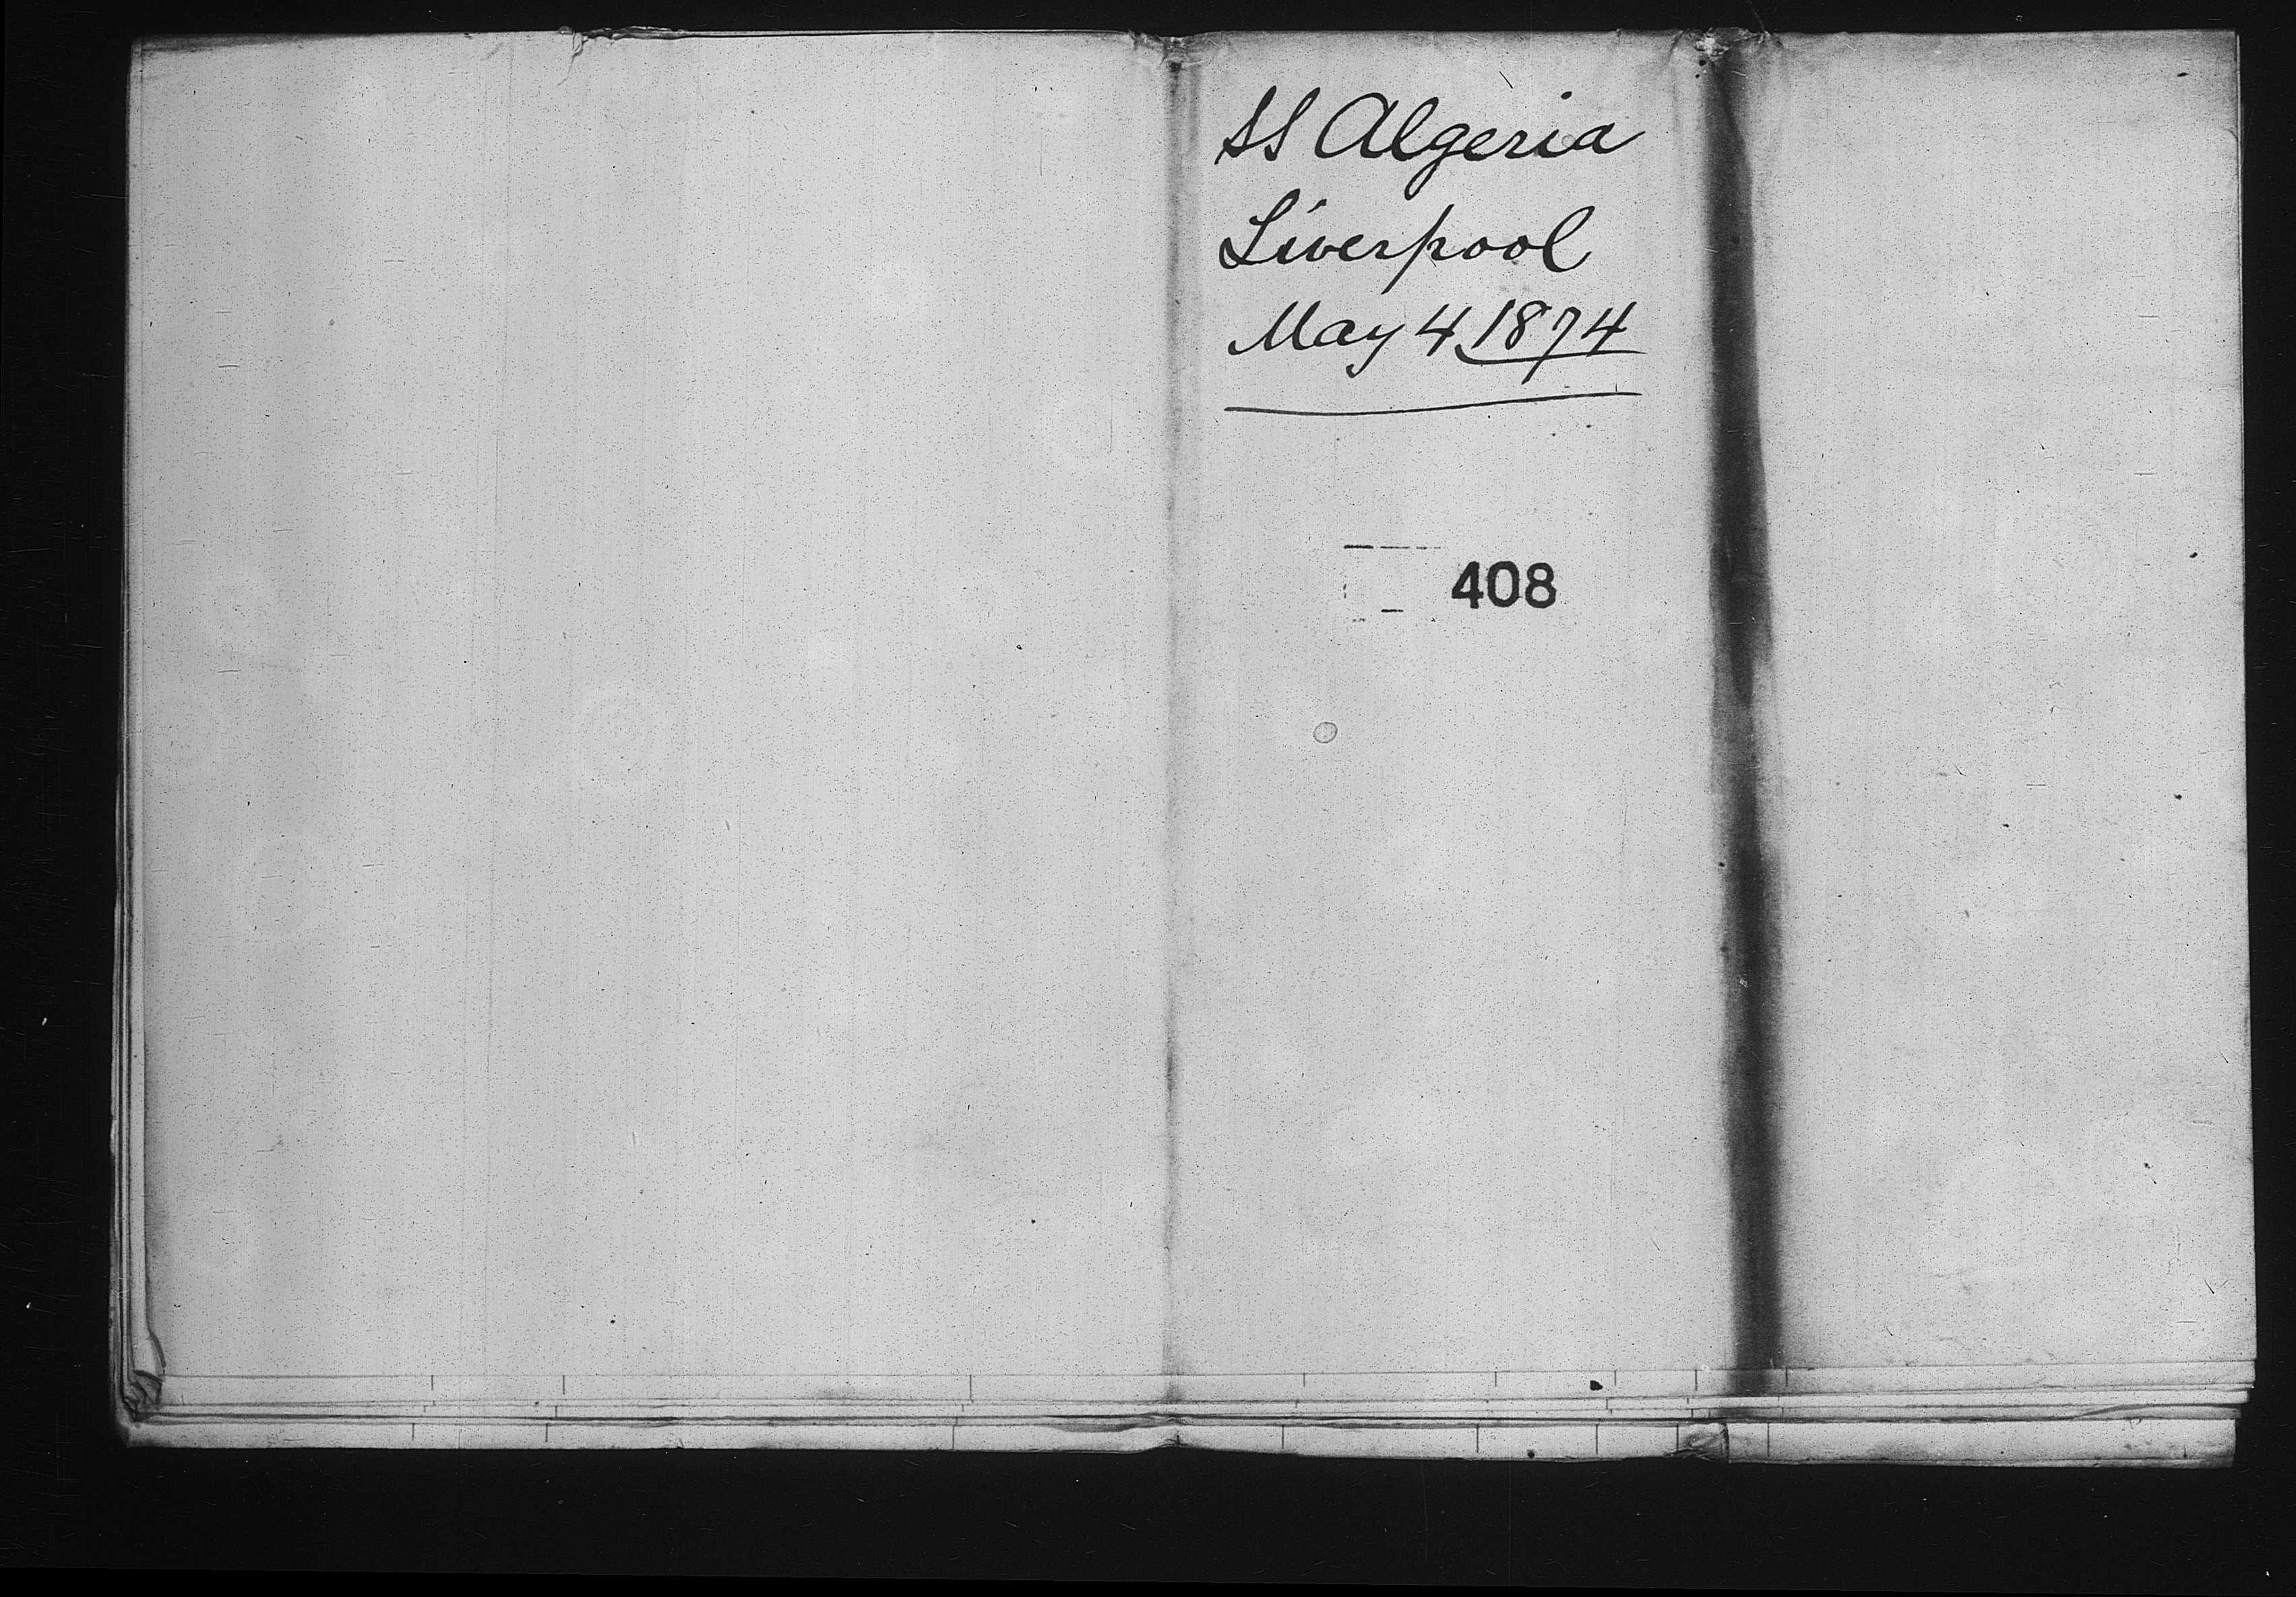 SS Algeria
Liverpool
May 4 1874
408